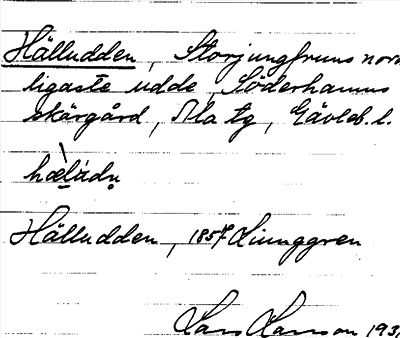 Hälludden, Storjungfruns nord
ligaste udde, Söderhamns
skärgård, Ala tg, Gävleb. l.
Hälludden, 1857 Ljunggren
Lars Larsson 193